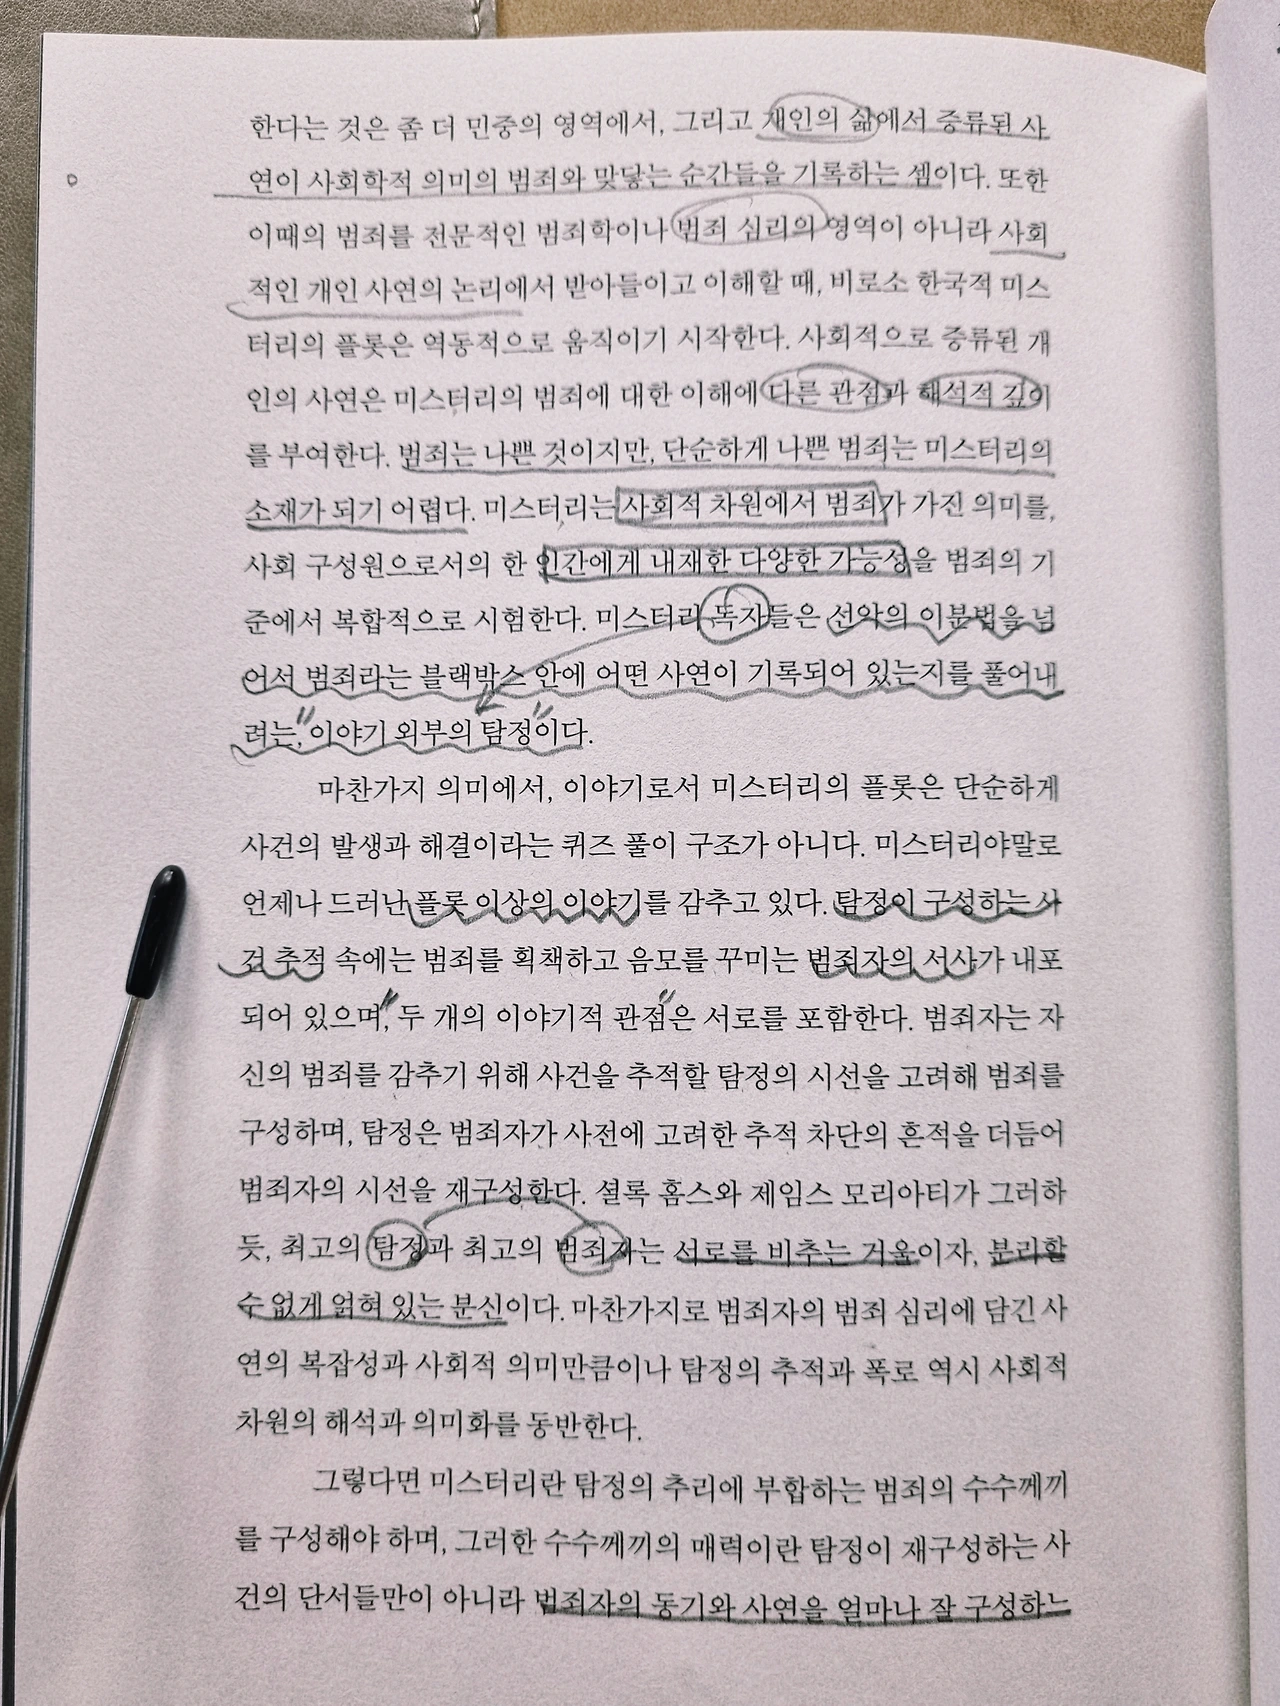 한다는 것은 좀 더 민중의 영역에서, 그리고 개인의 삶에서 증류된 사
연이 사회학적 의미의 범죄와 맞닿는 순간들을 기록하는 셈이다. 또한
이때의 범죄를 전문적인 범죄학이나 범죄 심리의 영역이 아니라 사회
적인 개인 사연의 논리에서 받아들이고 이해할 때, 비로소 한국적 미스
터리의 플롯은 역동적으로 움직이기 시작한다. 사회적으로 증류된 개
인의 사연은 미스터리의 범죄에 대한 이해에 다른 관점과 해석적 깊이
를 부여한다. 범죄는 나쁜 것이지만, 단순하게 나쁜 범죄는 미스터리의
소재가 되기 어렵다. 미스터리는 사회적 차원에서 범죄가 가진 의미를,
사회 구성원으로서의 한 인간에게 내재한 다양한 가능성을 범죄의 기
준에서 복합적으로 시험한다. 미스터리 독자들은 선악의 이분법을 넘
어서 범죄라는 블랙박스 안에 어떤 사연이 기록되어 있는지를 풀어내
려는, 이야기 외부의 탐정이다.
마찬가지 의미에서, 이야기로서 미스터리의 플롯은 단순하게
사건의 발생과 해결이라는 퀴즈 풀이 구조가 아니다. 미스터리야말로
언제나 드러난 플롯 이상의 이야기를 감추고 있다. 탐정이 구성하는 사
건 추적 속에는 범죄를 획책하고 음모를 꾸미는 범죄자의 서사가 내포
되어 있으며, 두 개의 이야기적 관점은 서로를 포함한다. 범죄자는 자
신의 범죄를 감추기 위해 사건을 추적할 탐정의 시선을 고려해 범죄를
구성하며, 탐정은 범죄자가 사전에 고려한 추적 차단의 흔적을 더듬어
범죄자의 시선을 재구성한다. 셜록 홈스와 제임스 모리아티가 그러하
듯, 최고의 탐정과 최고의 범죄자는 서로를 비추는 거울이자, 분리할
수 없게 얽혀 있는 분신이다. 마찬가지로 범죄자의 범죄 심리에 담긴 사
연의 복잡성과 사회적 의미만큼이나 탐정의 추적과 폭로 역시 사회적
차원의 해석과 의미화를 동반한다.
그렇다면 미스터리란 탐정의 추리에 부합하는 범죄의 수수께끼
를 구성해야 하며, 그러한 수수께끼의 매력이란 탐정이 재구성하는 사
건의 단서들만이 아니라 범죄자의 동기와 사연을 얼마나 잘 구성하느